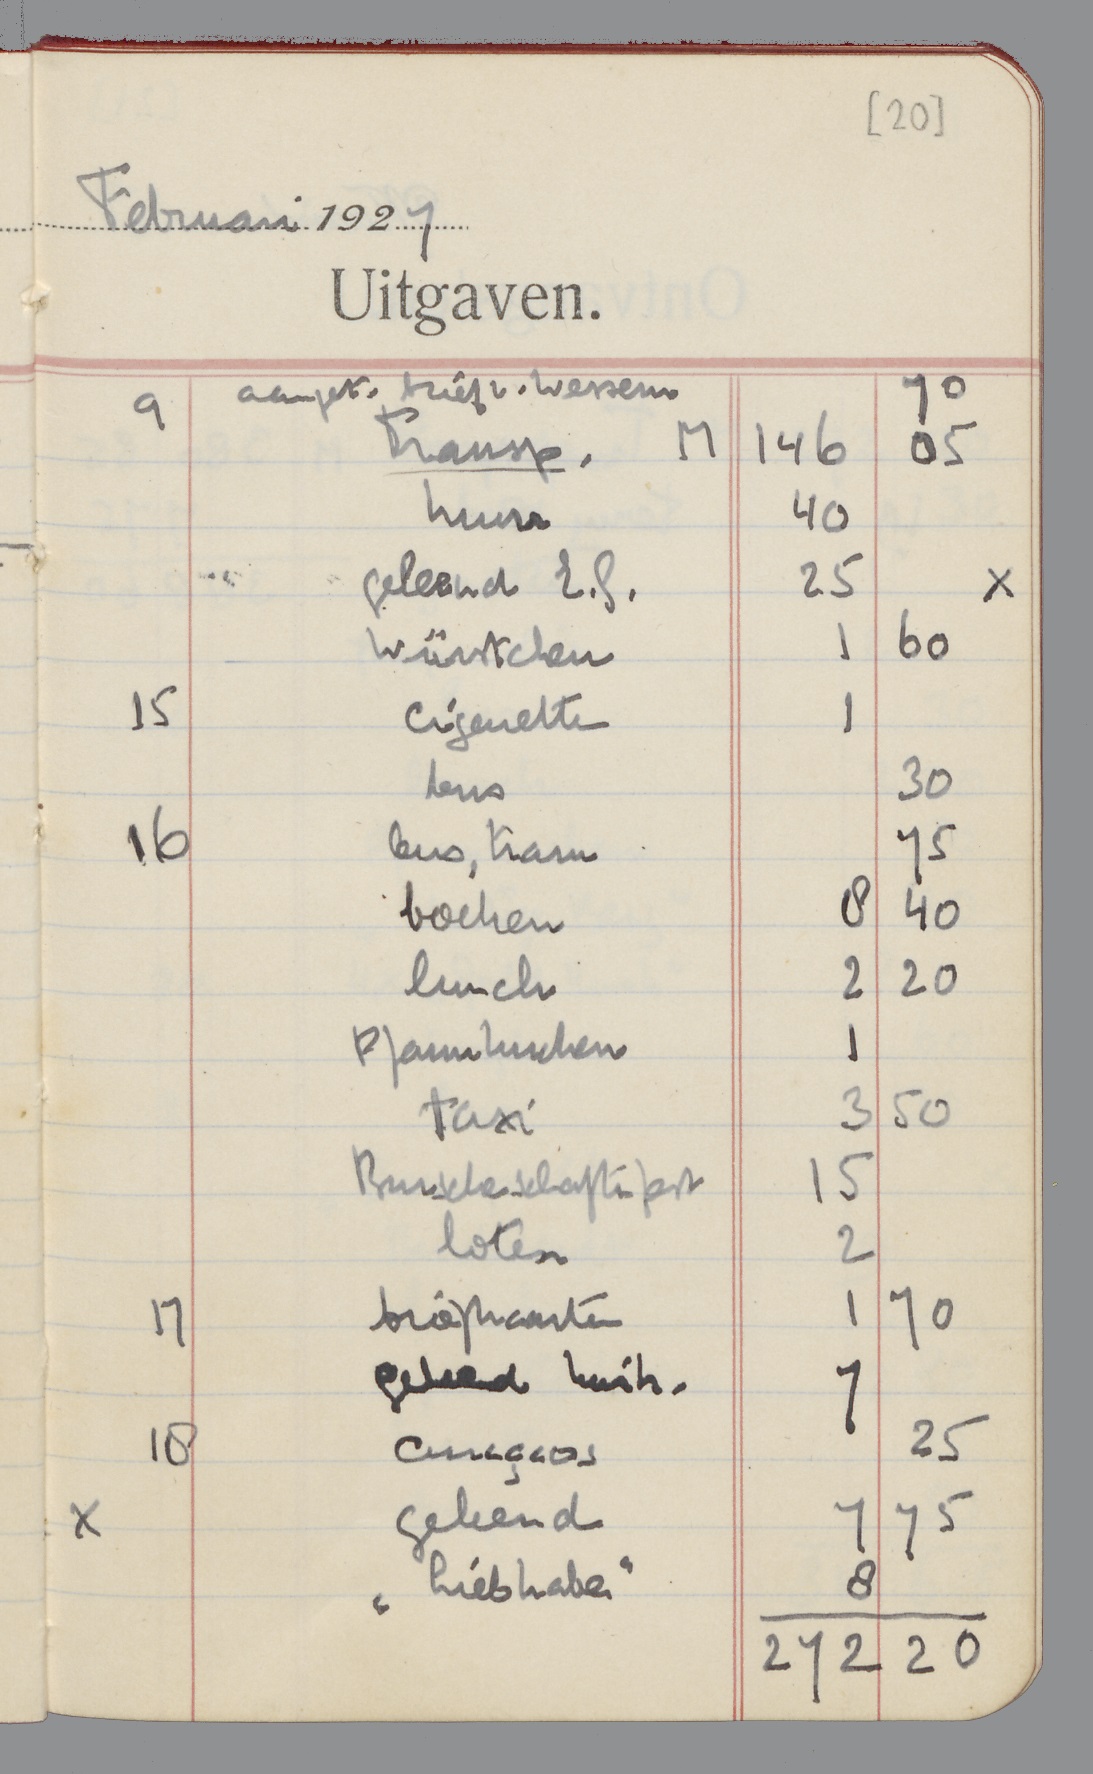 [20]
Februari 1927
Uitgaven.
9 aanget. briefk. Wessem 70
Transp. M 146 05
huur 40
geleend E.G. 25 x
Würstchen 1 60
15 cigaretten 1
bus 30
16 bus, tram 75
boeken 8 40
lunch 2 20
Pfannkuchen 1
taxi 3 50
15
loten 2
17 briefkaarten 1 70
geleend 7
18 curaçaos 25
x geleend 7 75
„Liebhaber" 8
272 20